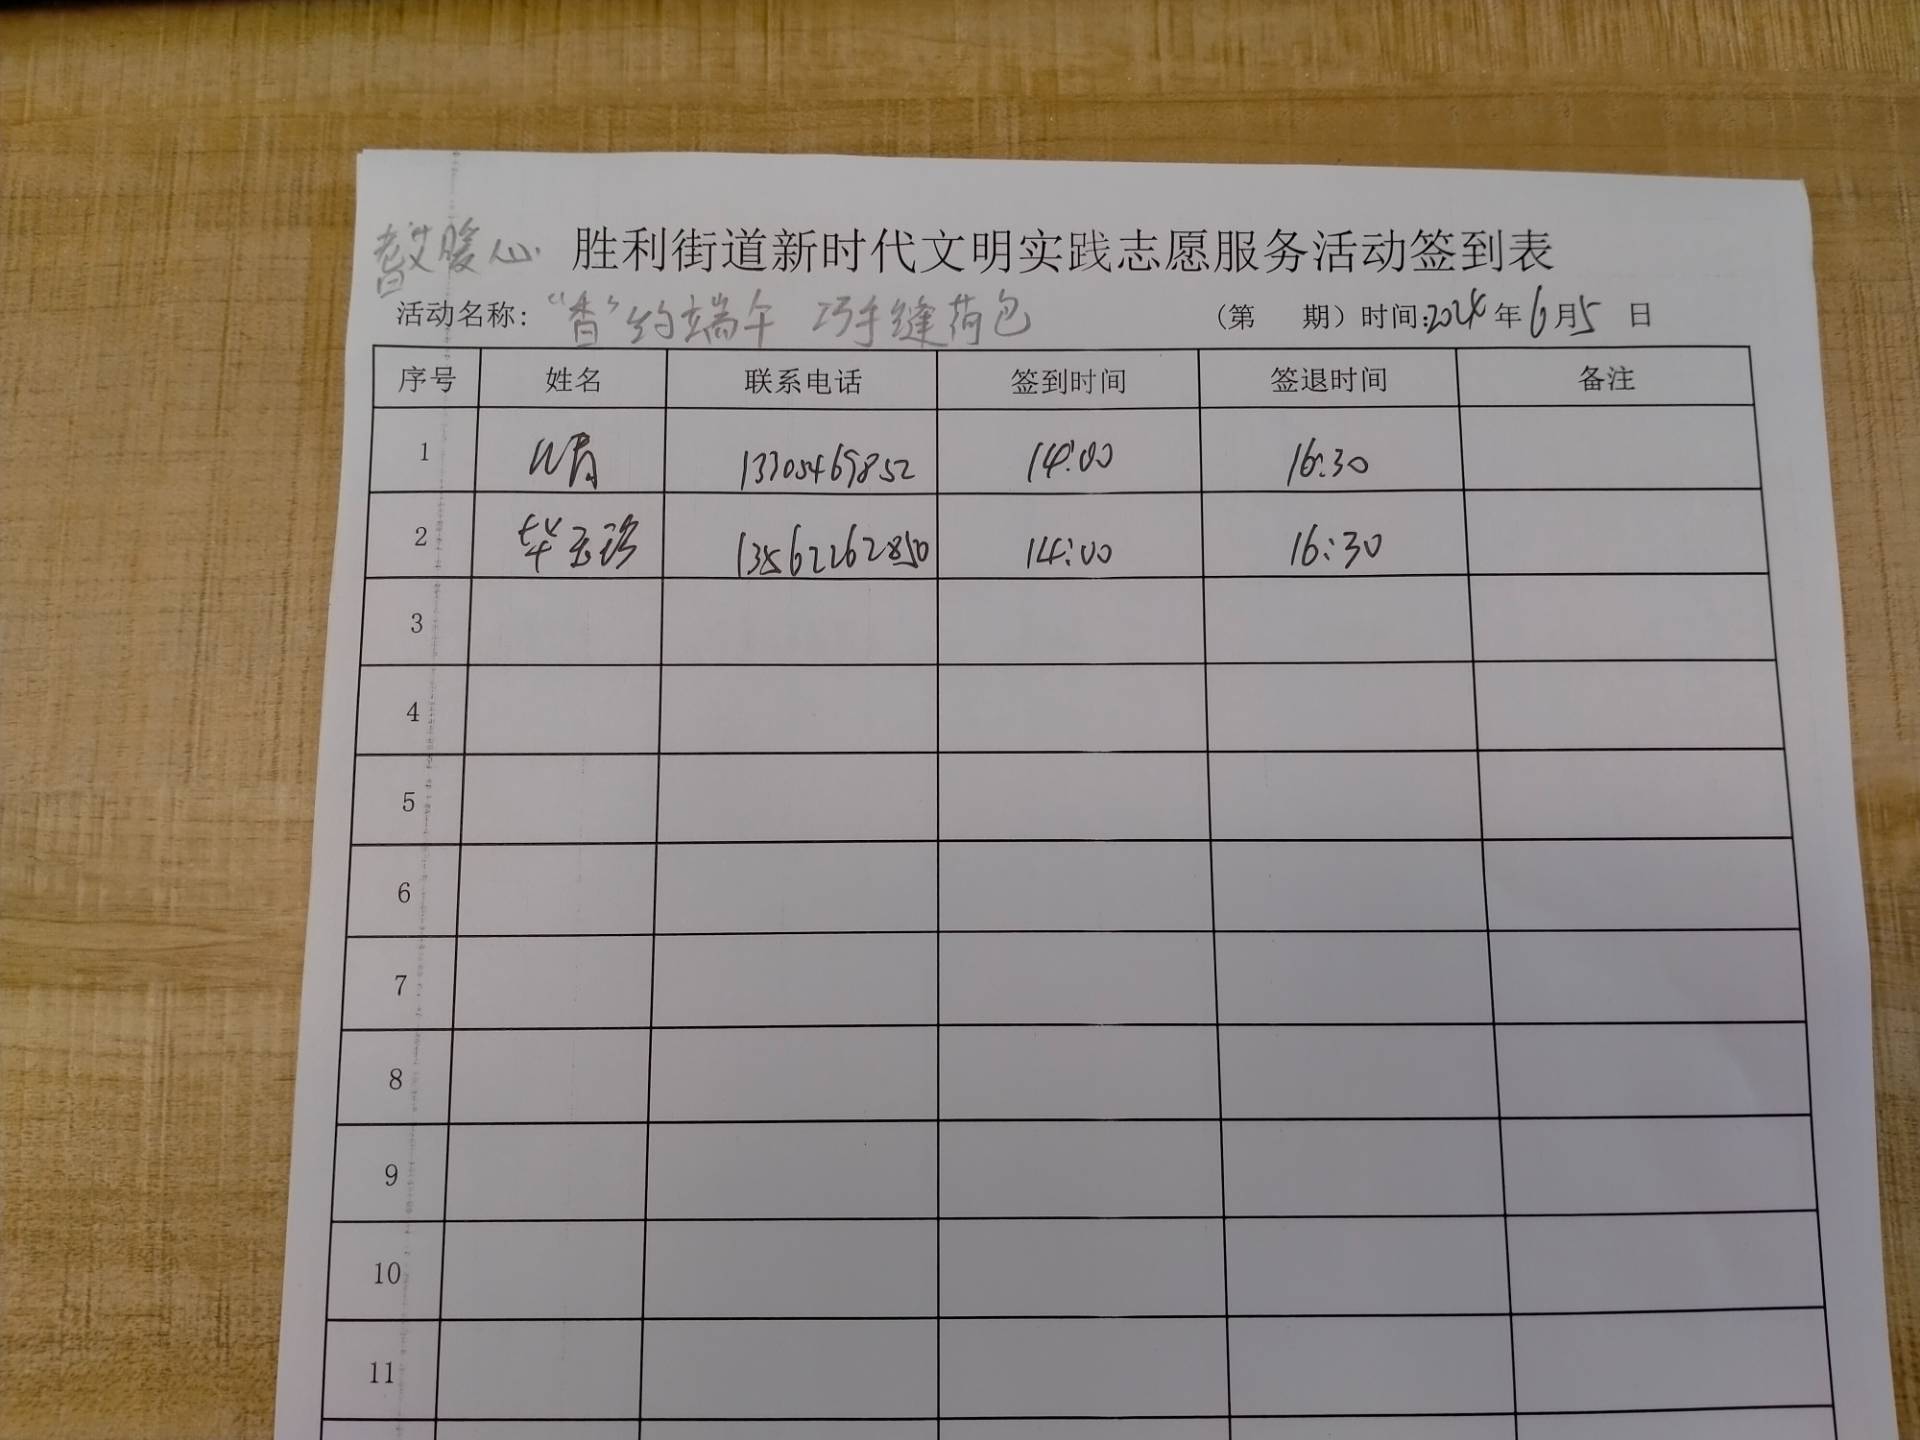 暖心 胜利街道新时代文明实践志愿服务活动签到表
活动名称: “香”约端午 巧手缝荷包 (第 期) 时间:2024年6月5日
序号 姓名 联系电话 签到时间 签退时间 备注
1 13305469852 14:00 16:30
2 毕玉珍 13562262850 14:00 16:30
3
4
5
6
7
8
9
10
11